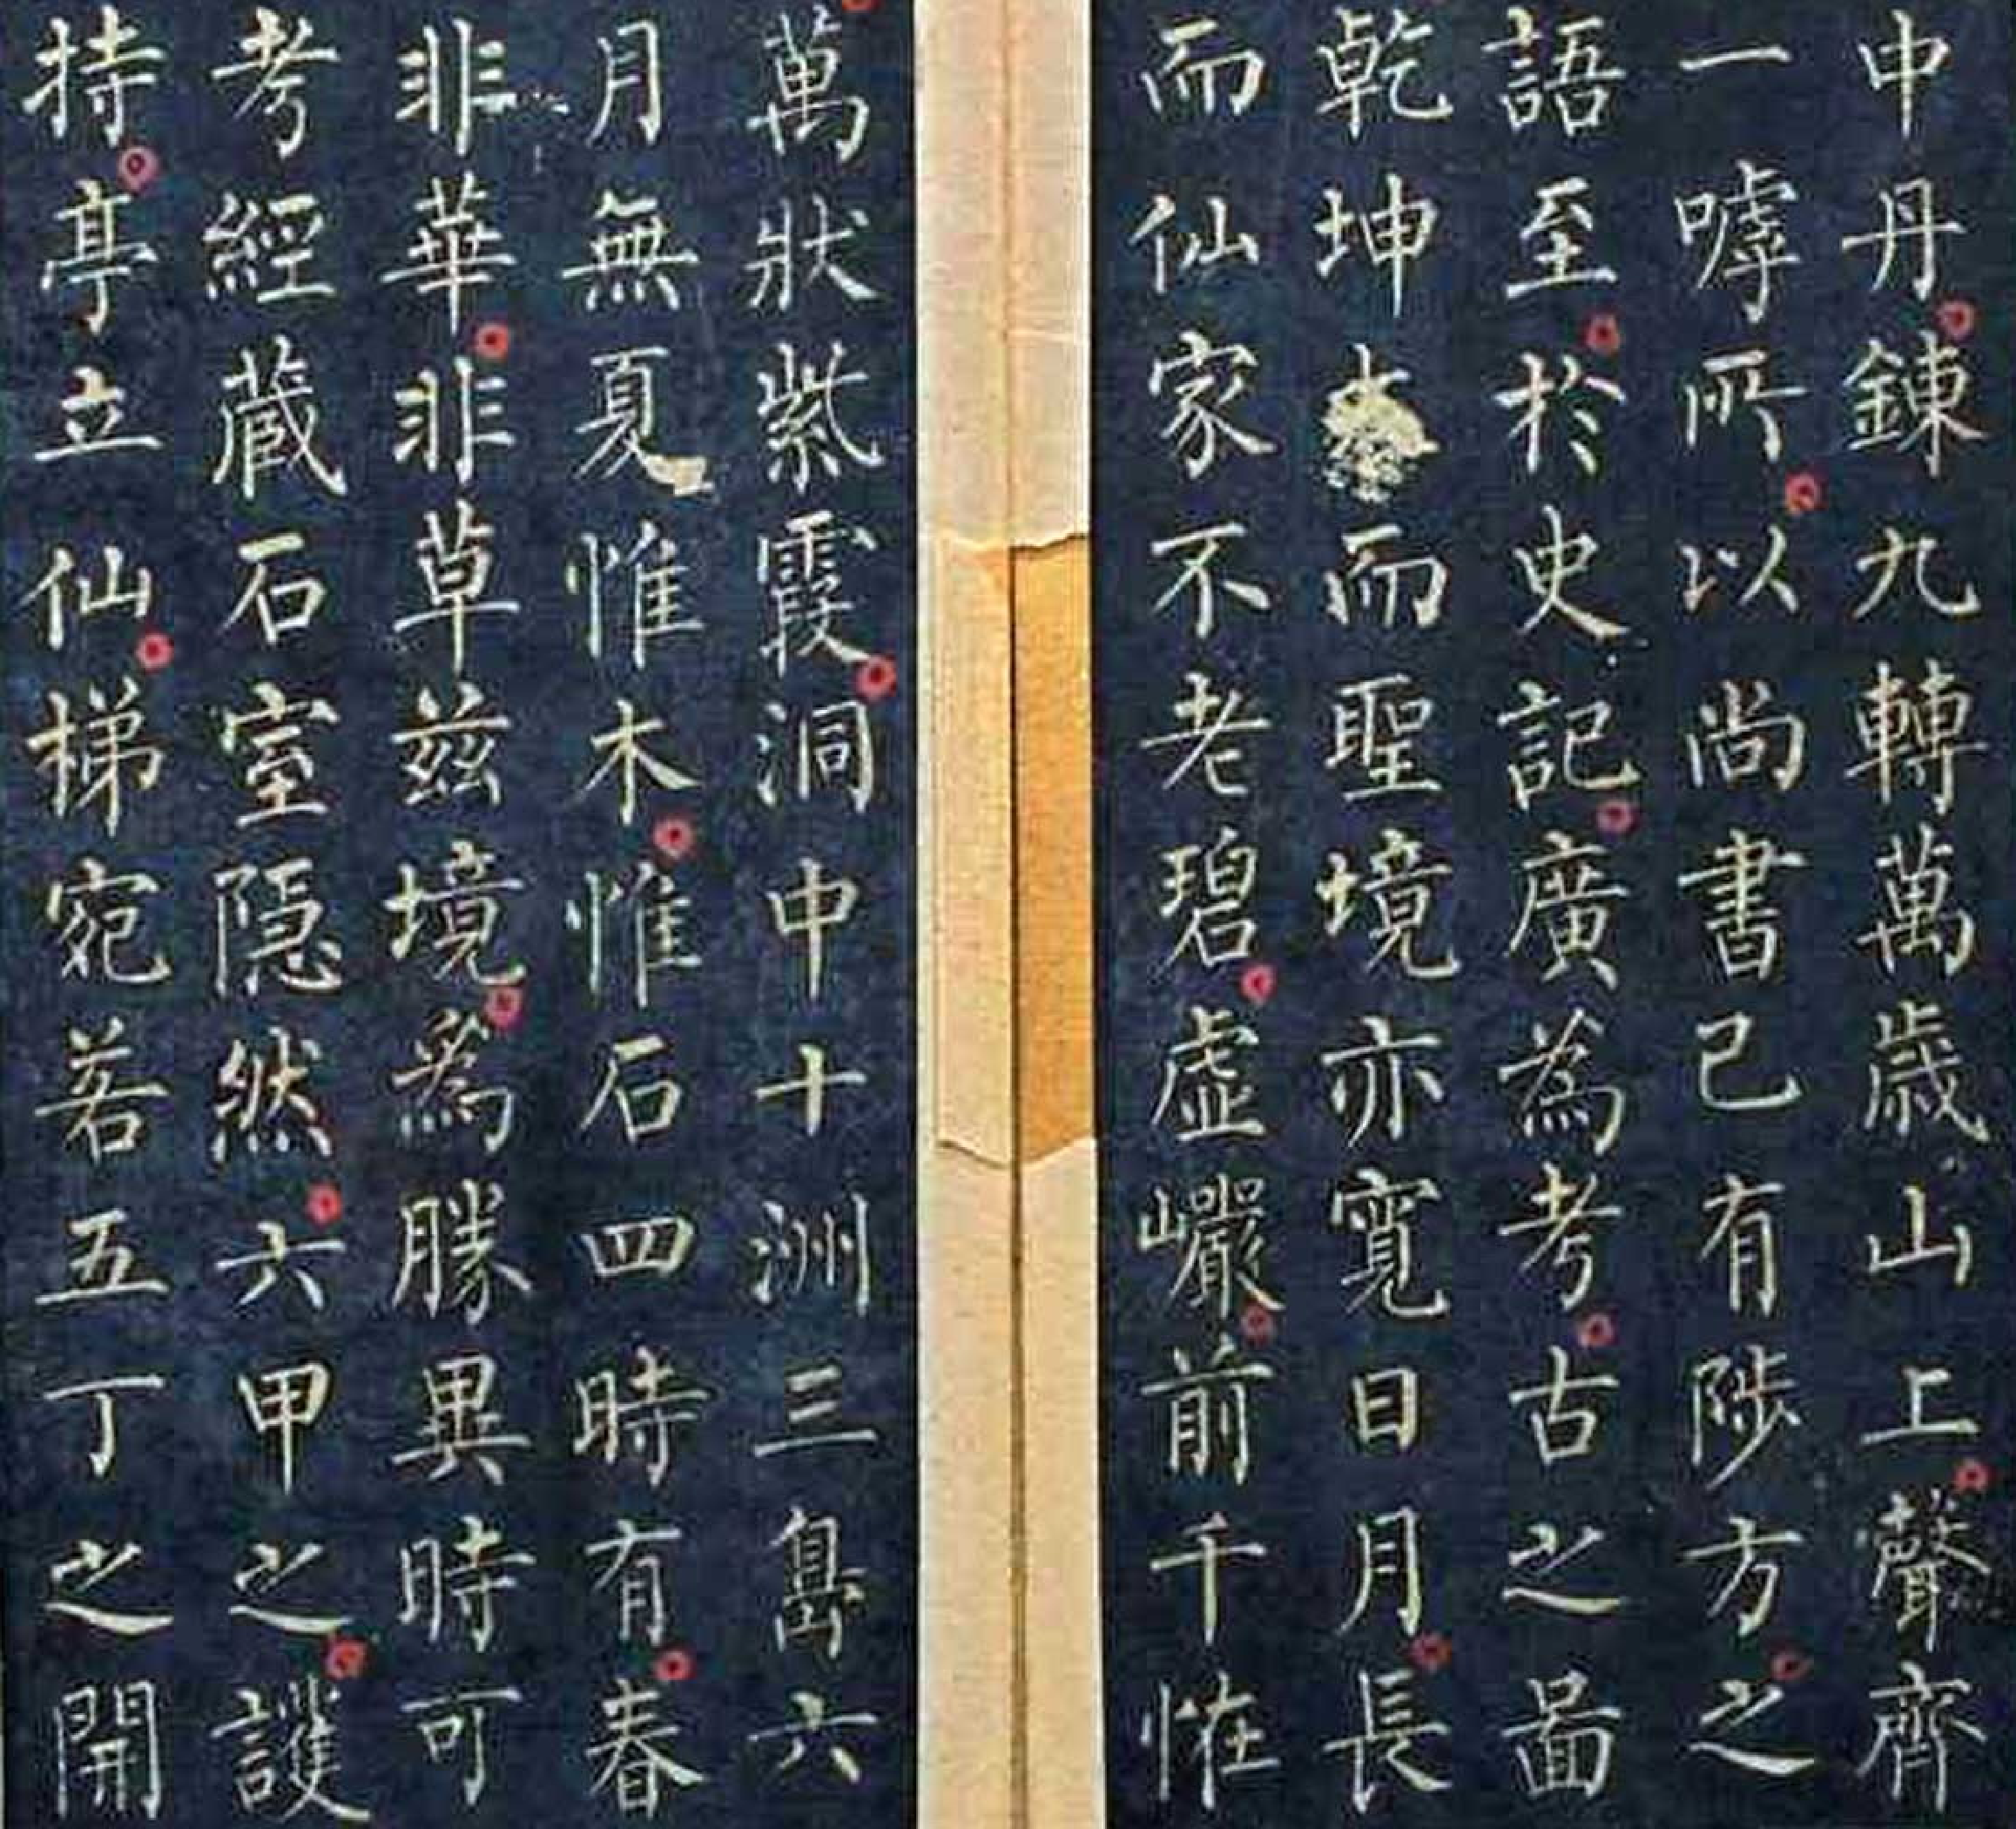 中丹錬九轉萬歳山上聲齊
一嘑所以尚書已有陟方之
語至於史記廣為考古之啚
乾坤泰而聖境亦寛日月長
而仙家不老碧虚巗前千恠
萬狀紫霞洞中十洲三島六
月無夏惟木惟石四時有春
非華非草兹境為勝異時可
考經蔵石室隠然六甲之護
持亭立仙梯宛若五丁之開